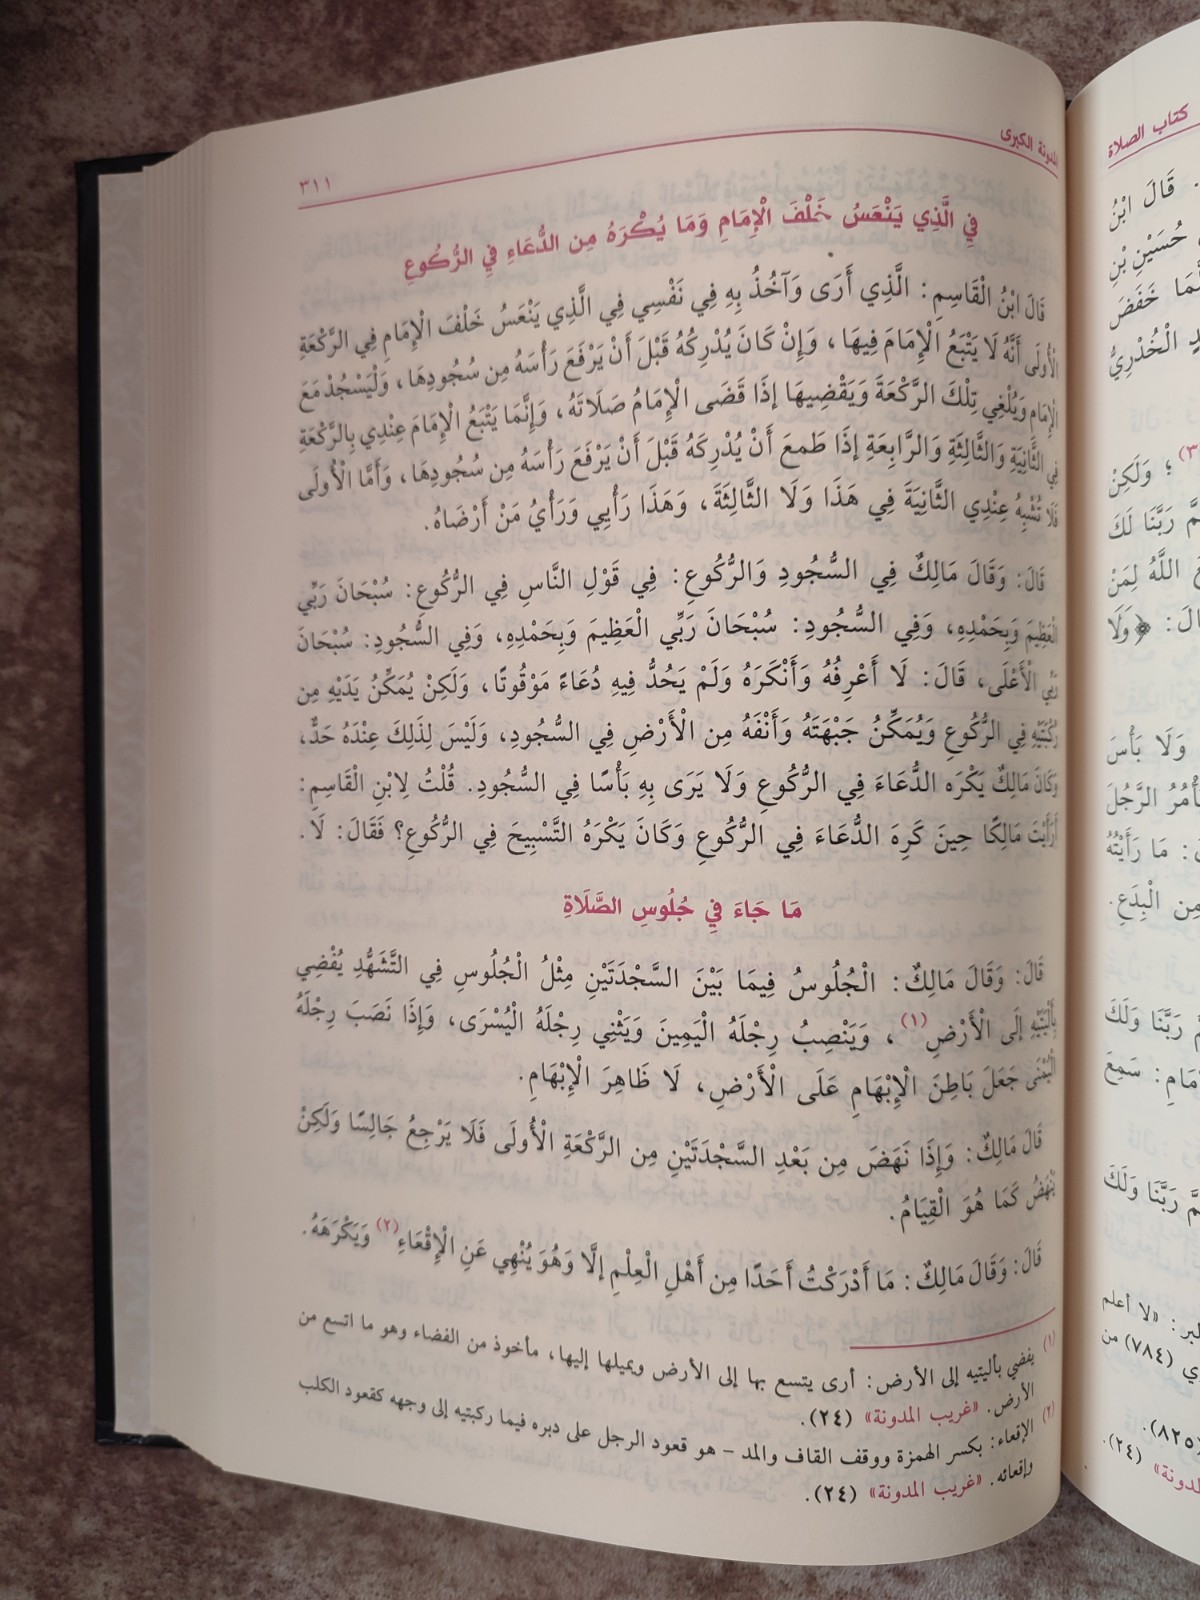 المدونة الكبرى
٣١١
فِي الَّذِي يَنْعَسُ خَلْفَ الْإِمَامِ وَمَا يُكْرَهُ مِن الدُّعَاءِ فِي الرُّكُوعِ
قَالَ ابْنُ الْقَاسِمِ: الَّذِي أَرَى وَآخُذُ بِهِ فِي نَفْسِي فِي الَّذِي يَنْعَسُ خَلْفَ الْإِمَامِ فِي الرَّكْعَةِ
الْأُولَى أَنَّهُ لَا يَتْبَعُ الْإِمَامَ فِيهَا، وَإِنْ كَانَ يُدْرِكُهُ قَبْلَ أَنْ يَرْفَعَ رَأْسَهُ مِن سُجُودِهَا، وَلْيَسْجُدْ مَعَ
الْإِمَامِ وَيُلْغِي تِلْكَ الرَّكْعَةَ وَيَقْضِيهَا إِذَا قَضَى الْإِمَامُ صَلَاتَهُ، وَإِنَّمَا يَتْبَعُ الْإِمَامَ عِنْدِي بِالرَّكْعَةِ
فِي الثَّانِيَةِ وَالثَّالِثَةِ وَالرَّابِعَةِ إِذَا طَمعَ أَنْ يُدْرِكَهُ قَبْلَ أَنْ يَرْفَعَ رَأْسَهُ مِن سُجُودِهَا، وَأَمَّا الْأُولَى
فَلَا تُشْبِهُ عِنْدِي الثَّانِيَةَ فِي هَذَا وَلَا الثَّالِثَةَ، وَهَذَا رَأْيِي وَرَأْيُ مَنْ أَرْضَاهُ.
قَالَ: وَقَالَ مَالِكٌ فِي السُّجُودِ وَالرُّكُوعِ: فِي قَوْلِ النَّاسِ فِي الرُّكُوعِ: سُبْحَانَ رَبِّي
الْعَظِيمَ وَبِحَمْدِهِ، وَفِي السُّجُودِ: سُبْحَانَ رَبِّي الْعَظِيمَ وَبِحَمْدِهِ، وَفِي السُّجُودِ: سُبْحَانَ
رَبِّي الْأَعْلَى، قَالَ: لَا أَعْرِفُهُ وَأَنْكَرَهُ وَلَمْ يَحُدُّ فِيهِ دُعَاءً مَوْقُوتًا، وَلَكِنْ يُمَكِّنُ يَدَيْهِ مِن
رُكْبَتَيْهِ فِي الرُّكُوعِ وَيُمَكِّنُ جَبْهَتَهُ وَأَنْفَهُ مِن الْأَرْضِ فِي السُّجُودِ، وَلَيْسَ لِذَلِكَ عِنْدَهُ حَدٌّ،
وَكَانَ مَالِكٌ يَكْرَه الدُّعَاءَ فِي الرُّكُوعِ وَلَا يَرَى بِهِ بَأْسًا فِي السُّجُودِ. قُلْتُ لِابْنِ الْقَاسِمِ:
أَرَأَيْتَ مَالِكًا حِينَ كَرِهَ الدُّعَاءَ فِي الرُّكُوعِ وَكَانَ يَكْرَهُ التَّسْبِيحَ فِي الرُّكُوعِ؟ فَقَالَ: لَا.
مَا جَاءَ فِي جُلُوسِ الصَّلَاةِ
قَالَ: وَقَالَ مَالِكٌ: الْجُلُوسُ فِيمَا بَيْنَ السَّجْدَتَيْنِ مِثْلُ الْجُلُوسِ فِي التَّشَهُّدِ يُفْضِي
بِأَلْيَتَيْهِ إِلَى الْأَرْضِ(١)، وَيَنْصِبُ رِجْلَهُ الْيَمِينَ وَيَثْنِي رِجْلَهُ الْيُسْرَى، وَإِذَا نَصَبَ رِجْلَهُ
الْيُمْنَى جَعَلَ بَاطِنَ الْإِبْهَامِ عَلَى الْأَرْضِ، لَا ظَاهِرَ الْإِبْهَامِ.
قَالَ مَالِكٌ: وَإِذَا نَهَضَ مِن بَعْدِ السَّجْدَتَيْنِ مِن الرَّكْعَةِ الْأُولَى فَلَا يَرْجِعُ جَالِسًا وَلَكِنْ
يَنْهَضُ كَمَا هُوَ الْقِيَامُ.
قَالَ: وَقَالَ مَالِكٌ: مَا أَدْرَكْتُ أَحَدًا مِن أَهْلِ الْعِلْمِ إِلَّا وَهُوَ يُنْهِي عَنِ الْإِقْعَاءِ(٢) وَيَكْرَهَهُ.
(١) يفضي بأليتيه إلى الأرض: أرى يتسع بها إلى الأرض ويميلها إليها، مأخوذ من الفضاء وهو ما اتسع من
الأرض. «غريب المدونة» (٢٤).
(٢) الإقعاء: بكسر الهمزة ووقف القاف والمد - هو قعود الرجل على دبره فيما ركبتيه إلى وجهه كقعود الكلب
وإقعائه. «غريب المدونة» (٢٤).
كتاب الصلاة
قَالَ ابْنُ
حُسَيْنِ بْنِ
خَفَضَ
الْخُدْرِيُّ
؛ وَلَكِنْ
رَبَّنَا لَكَ
اللَّهُ لِمَنْ
﴿وَلَا
وَلَا بَأْسَ
الرَّجُلَ
: مَا رَأَيْتُهُ
مِن الْبِدَعِ.
رَبَّنَا وَلَكَ
: سَمِعَ
رَبَّنَا وَلَكَ
: «لا أعلم
(٧٨٤) من
(٢٤).